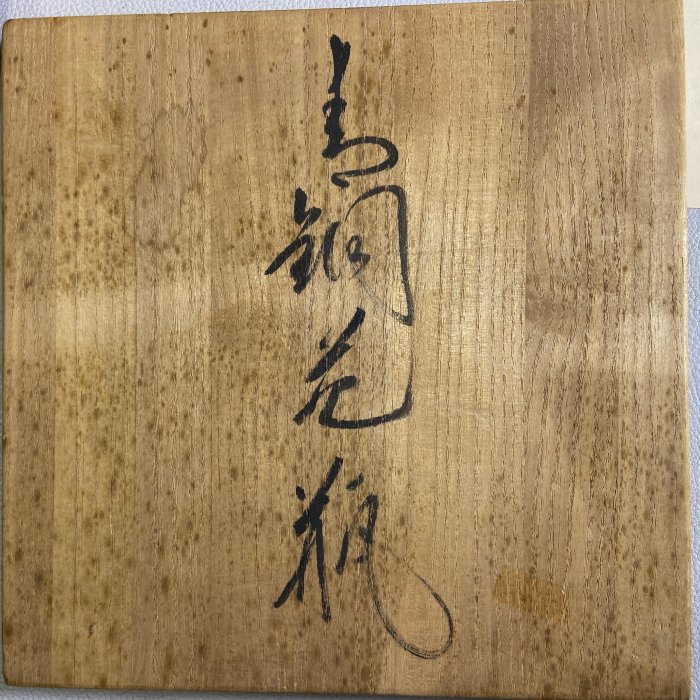 青銅花瓶